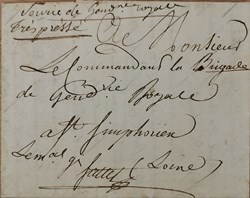 Service de Gendie Royale
très pressé
De Monsieur
Le Commandant la Brigade
de Gendie Royale
a St. Simphorien
Le mal
(Loire)